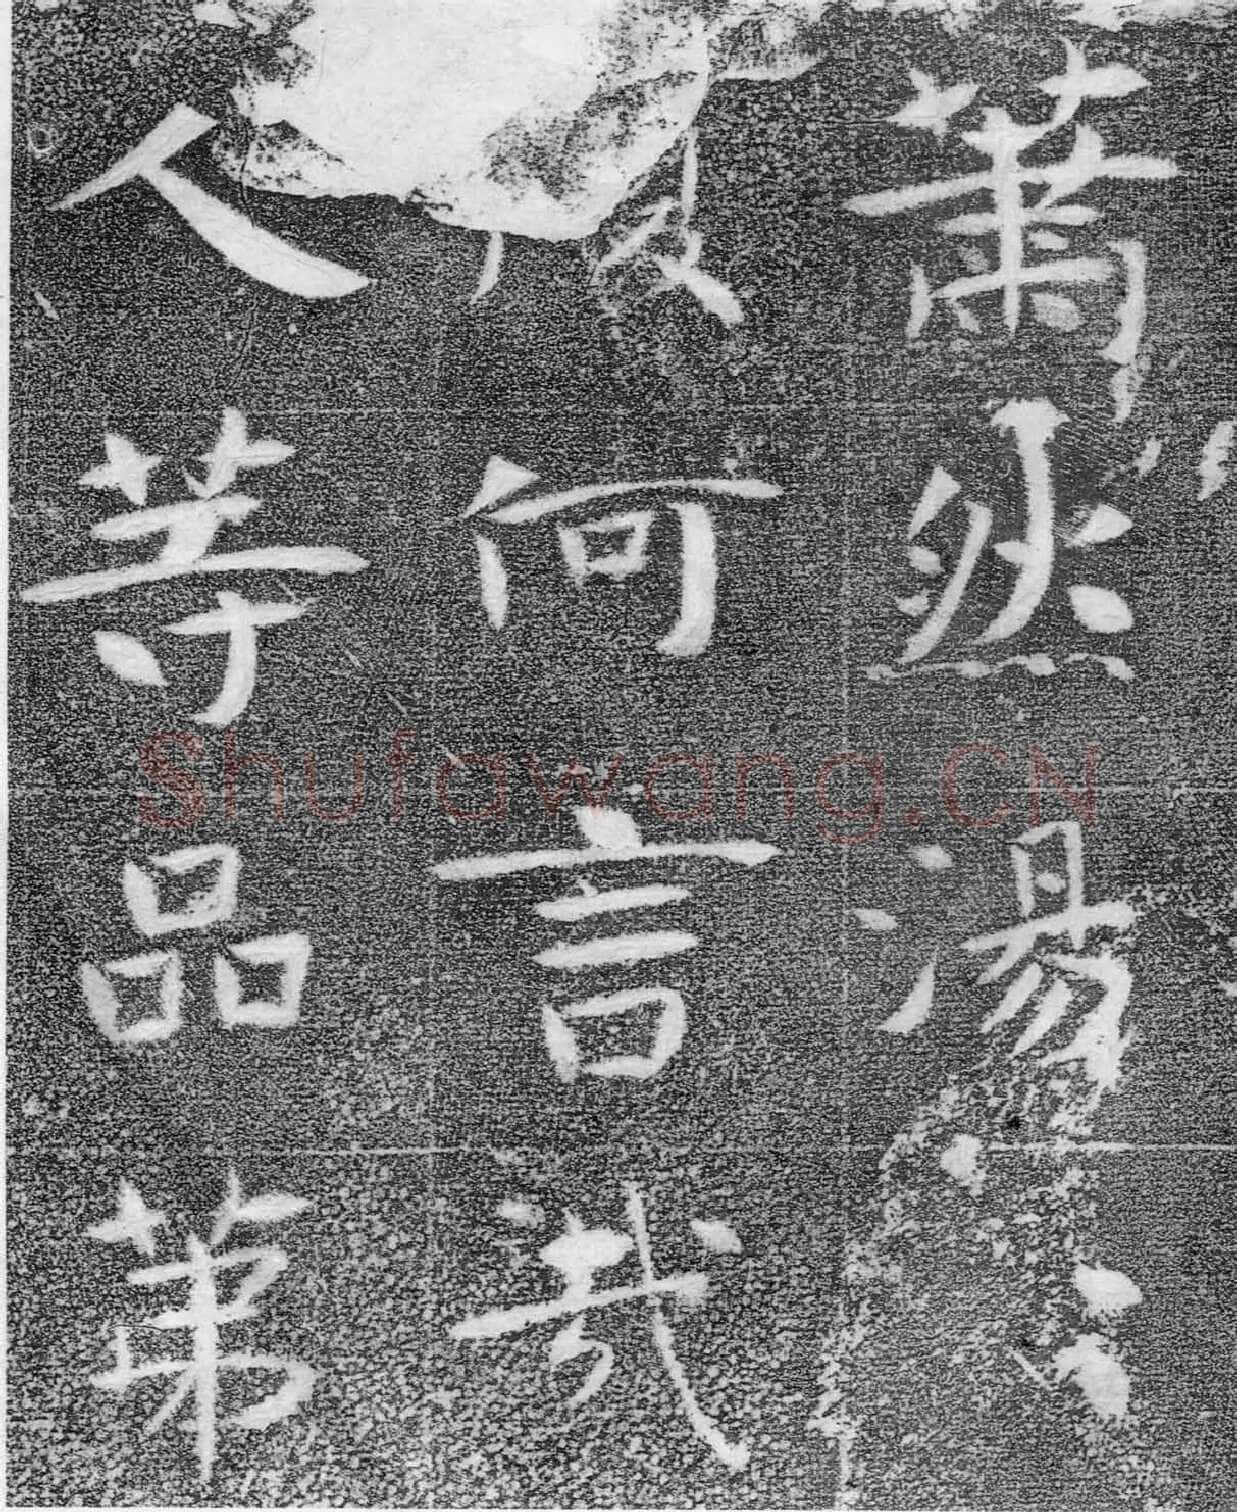 蕭然湯
何言
人等品第
Shufawang.CN